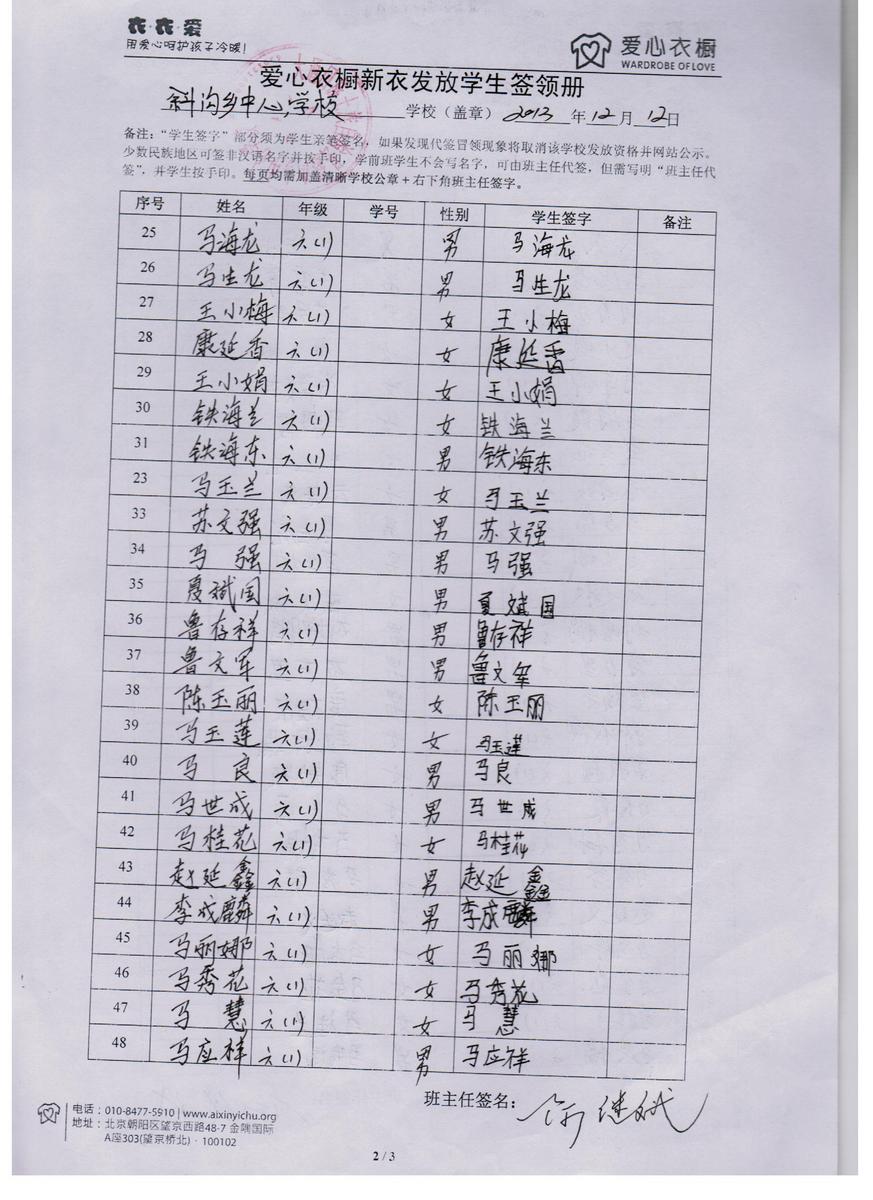 衣·衣·爱
用爱心呵护孩子冷暖!
爱心衣橱
WARDROBE OF LOVE
爱心衣橱新衣发放学生签领册
斜沟乡中心学校 学校（盖章） 2013 年 12 月 12 日
备注："学生签字"部分须为学生亲笔签名，如果发现代签冒领现象将取消该学校发放资格并网站公示。
少数民族地区可签非汉语名字并按手印，学前班学生不会写名字，可由班主任代签，但需写明"班主任代
签"，并学生按手印。每页均需加盖清晰学校公章+右下角班主任签字。
序号 姓名 年级 学号 性别 学生签字 备注
25 马海龙 六(1) 男 马海龙
26 马生龙 六(1) 男 马生龙
27 王小梅 六(1) 女 王小梅
28 康延香 六(1) 女 康延香
29 王小娟 六(1) 女 王小娟
30 铁海兰 六(1) 女 铁海兰
31 铁海东 六(1) 男 铁海东
23 马玉兰 六(1) 女 马玉兰
33 苏文强 六(1) 男 苏文强
34 马强 六(1) 男 马强
35 夏斌国 六(1) 男 夏斌国
36 鲁存祥 六(1) 男 鲁存祥
37 鲁文军 六(1) 男 鲁文军
38 陈玉丽 六(1) 女 陈玉丽
39 马玉莲 六(1) 女 马玉莲
40 马良 六(1) 男 马良
41 马世成 六(1) 男 马世成
42 马桂花 六(1) 女 马桂花
43 赵延鑫 六(1) 男 赵延鑫
44 李成麟 六(1) 男 李成麟
45 马丽娜 六(1) 女 马丽娜
46 马秀花 六(1) 女 马秀花
47 马慧 六(1) 女 马慧
48 马应祥 六(1) 男 马应祥
班主任签名：
电话：010-8477-5910 | www.aixinyichu.org
地址：北京朝阳区望京西路48-7 金隅国际
A座303(望京桥北)·100102
2 / 3